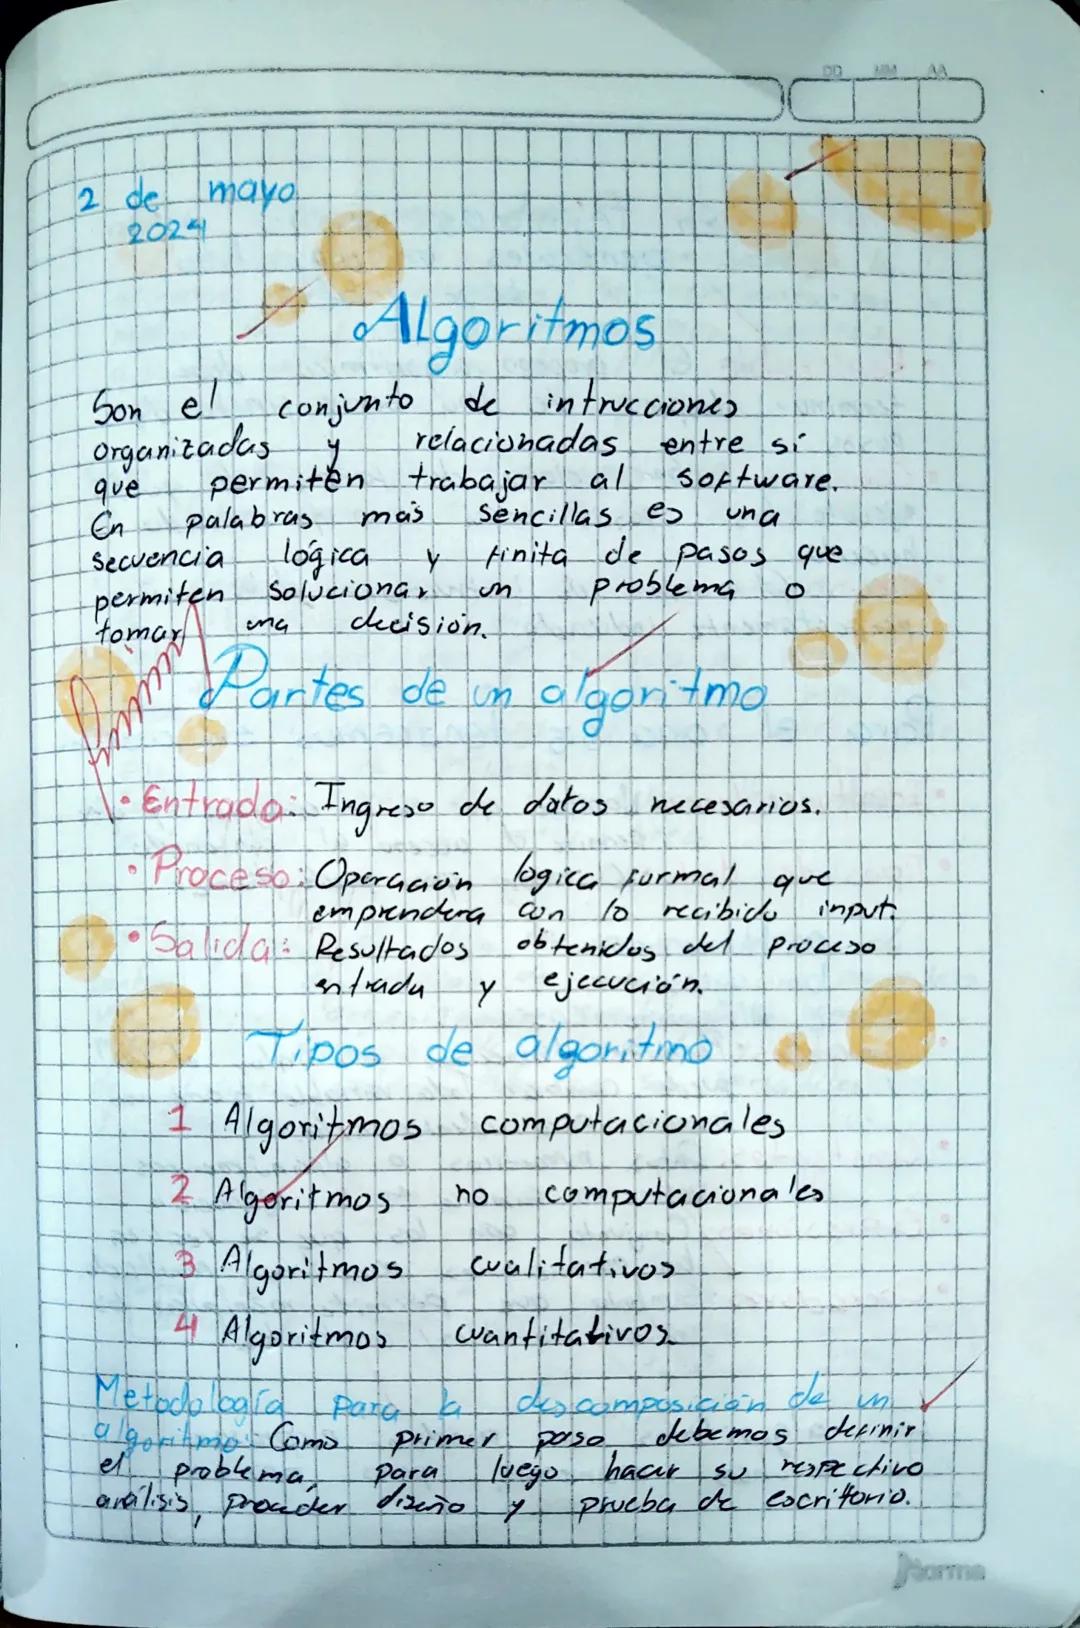 DD MM AA
2 de mayo
2024
Algoritmos
Son el conjunto de intrucciones
organizadas y relacionadas entre sí
que permiten trabajar al software.
En palabras más sencillas es una
secuencia lógica y finita de pasos que
permiten solucionar un problema o
tomar una decisión.
Partes de un algoritmo
• Entrada: Ingreso de datos necesarios.
• Proceso: Operación logica formal que
emprendera con lo recibido input.
• Salida: Resultados obtenidos del proceso
entrada y ejecución.
Tipos de algoritmo
1 Algoritmos computacionales
2 Algoritmos no computacionales
3 Algoritmos cualitativos
4 Algoritmos cuantitativos
Metodología para la descomposición de un
algoritmo: Como primer paso debemos definir
el problema, para luego hacer su respectivo
análisis, proceder diseño y prueba de escritorio.
Norma